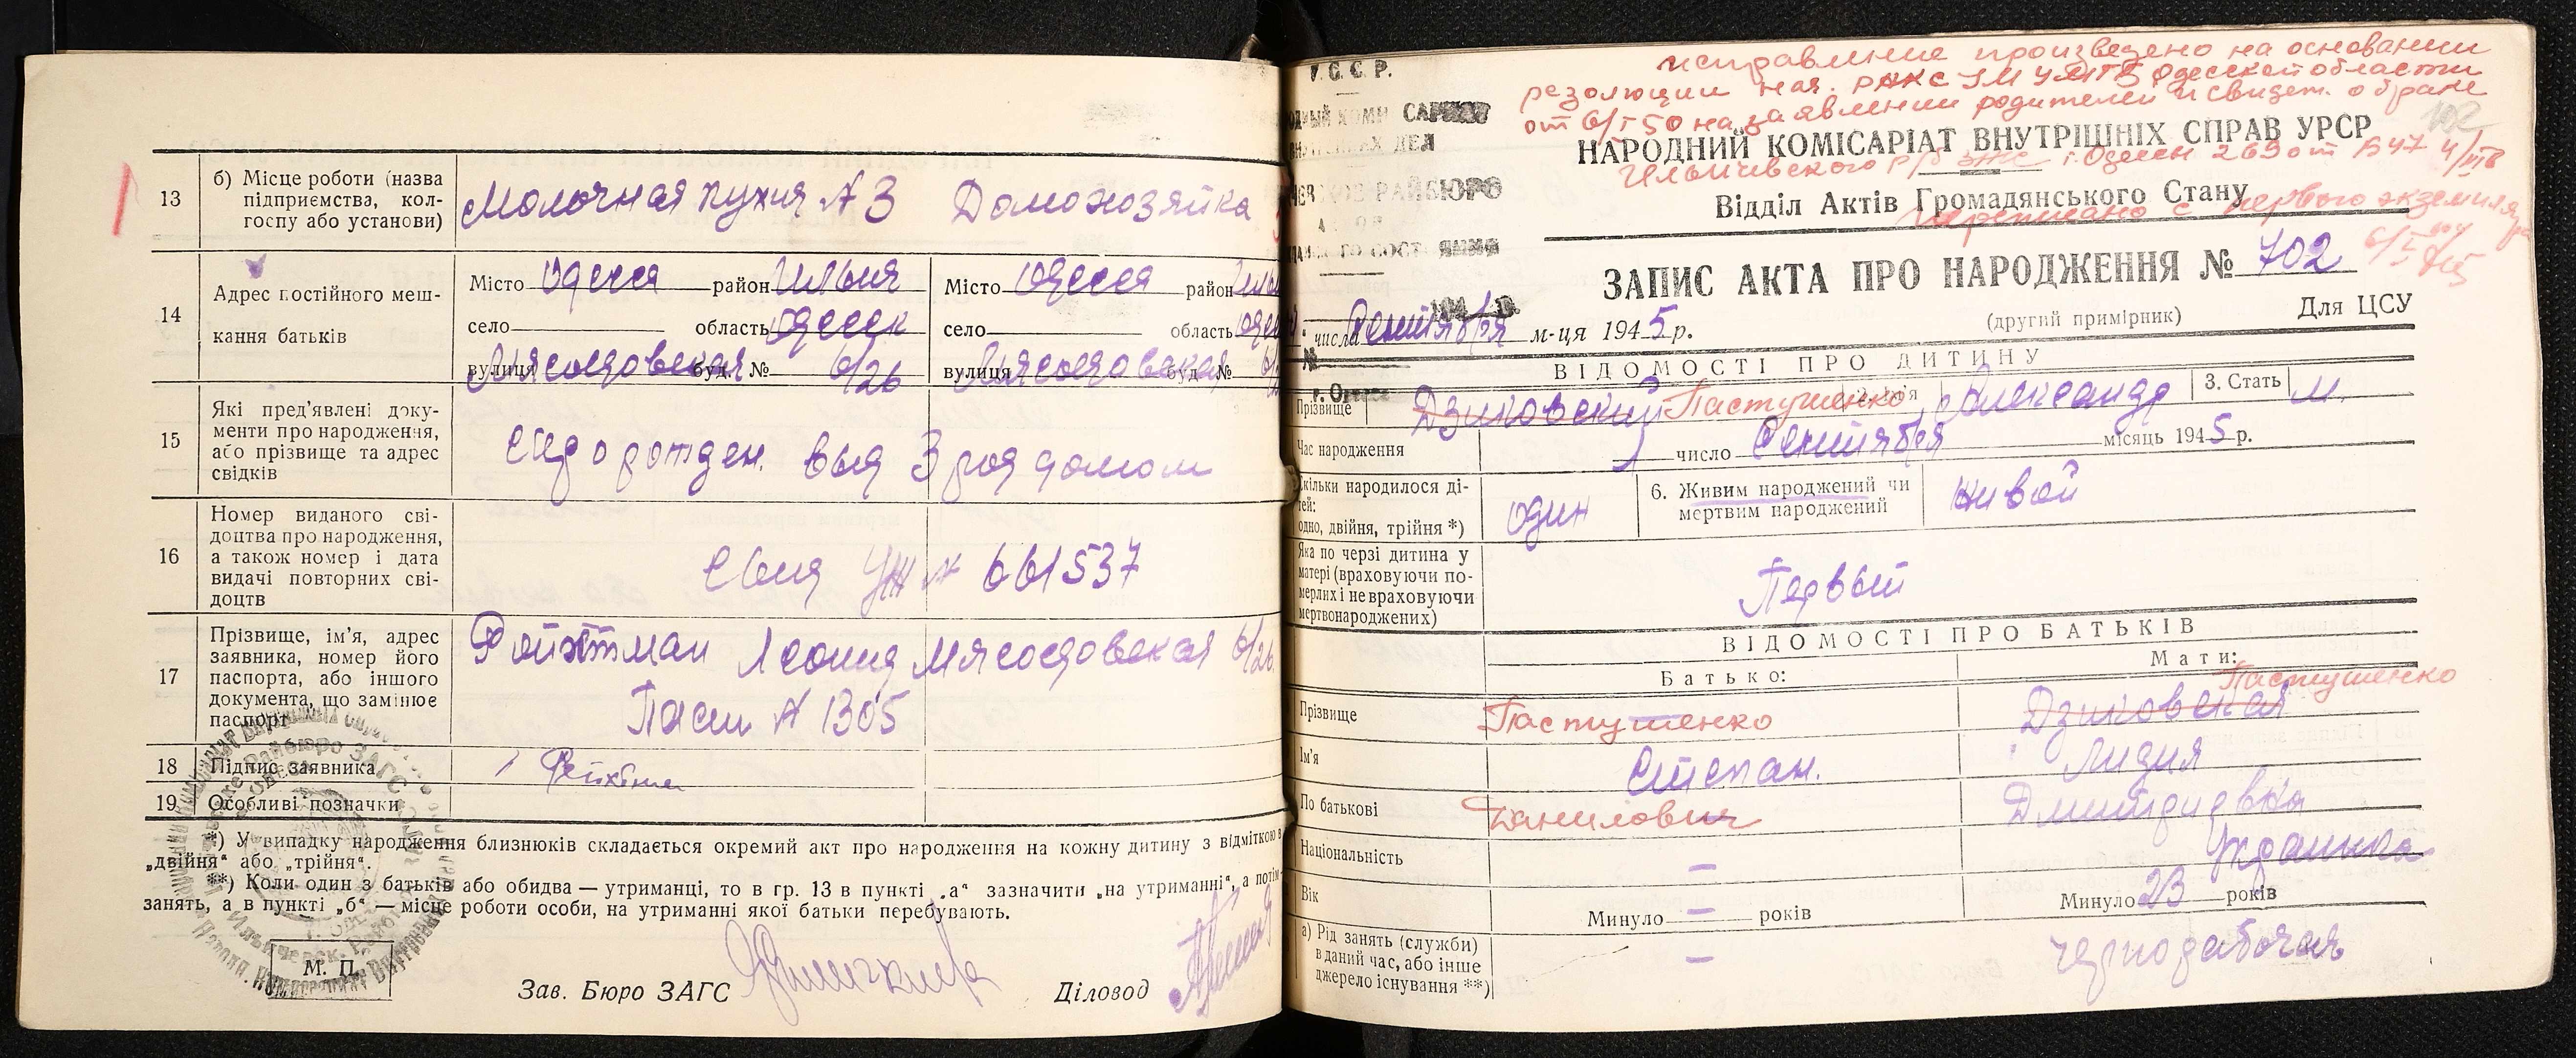 13
б) Місце роботи (назва
підприємства, кол-
госпу або установи)
Молочная кухня № 3 Домохозяйка
14
Адрес постійного меш-
кання батьків
Місто Одесса район Ильич
село область Одесск
вулиця Мясоедовская буд. № 6/26
Місто Одесса район
село область
вулиця Мясоедовская буд. №
15
Які пред'явлені доку-
менти про народження,
або прізвище та адрес
свідків
выд 3 род домом
16
Номер виданого сві-
доцтва про народження,
а також номер і дата
видачі повторних сві-
доцтв
№ 661537
17
Прізвище, ім'я, адрес
заявника, номер його
паспорта, або іншого
документа, що замінює
паспорт
Леонид Мясоедовская 6/26
Пасп № 1305
18 Підпис заявника
19 Особливі позначки
*) У випадку народження близнюків складається окремий акт про народження на кожну дитину з відміткою
„двійня“ або „трійня“.
**) Коли один з батьків або обидва — утриманці, то в гр. 13 в пункті „а“ зазначити „на утриманні“, а потім
занять, а в пункті „б“ — місце роботи особи, на утриманні якої батьки перебувають.
М. П.
Зав. Бюро ЗАГС
Діловод
У.С.С.Р.
исправление произведено на основании
резолюции Одесской области
от 6/I 50 на заявлении родителей и свидет. о браке
НАРОДНИЙ КОМІСАРІАТ ВНУТРІШНІХ СПРАВ УРСР
Ильичевского г. Одессы
Відділ Актів Громадянського Стану
с первого экземпляра
ЗАПИС АКТА ПРО НАРОДЖЕННЯ № 702
(другий примірник)
Для ЦСУ
числа Сентября м-ця 1945 р.
ВІДОМОСТІ ПРО ДИТИНУ
Прізвище Дзиковский Пастушенко Александр 3. Стать М.
Час народження число Сентября місяць 1945 р.
Скільки народилося ді-
тей:
одно, двійня, трійня *)
один
6. Живим народжений чи
мертвим народжений
живой
Яка по черзі дитина у
матері (враховуючи по-
мерлих і не враховуючи
мертвонароджених)
Первый
ВІДОМОСТІ ПРО БАТЬКІВ
Батько: Мати:
Пастушенко
Прізвище Пастушенко Дзиковская
Ім'я Степан. Лидия
По батькові Данилович Дмитриевна
Національність — Украинка
Вік Минуло — років Минуло 23 років
а) Рід занять (служби)
в даний час, або інше
джерело існування **)
—
чернорабочая